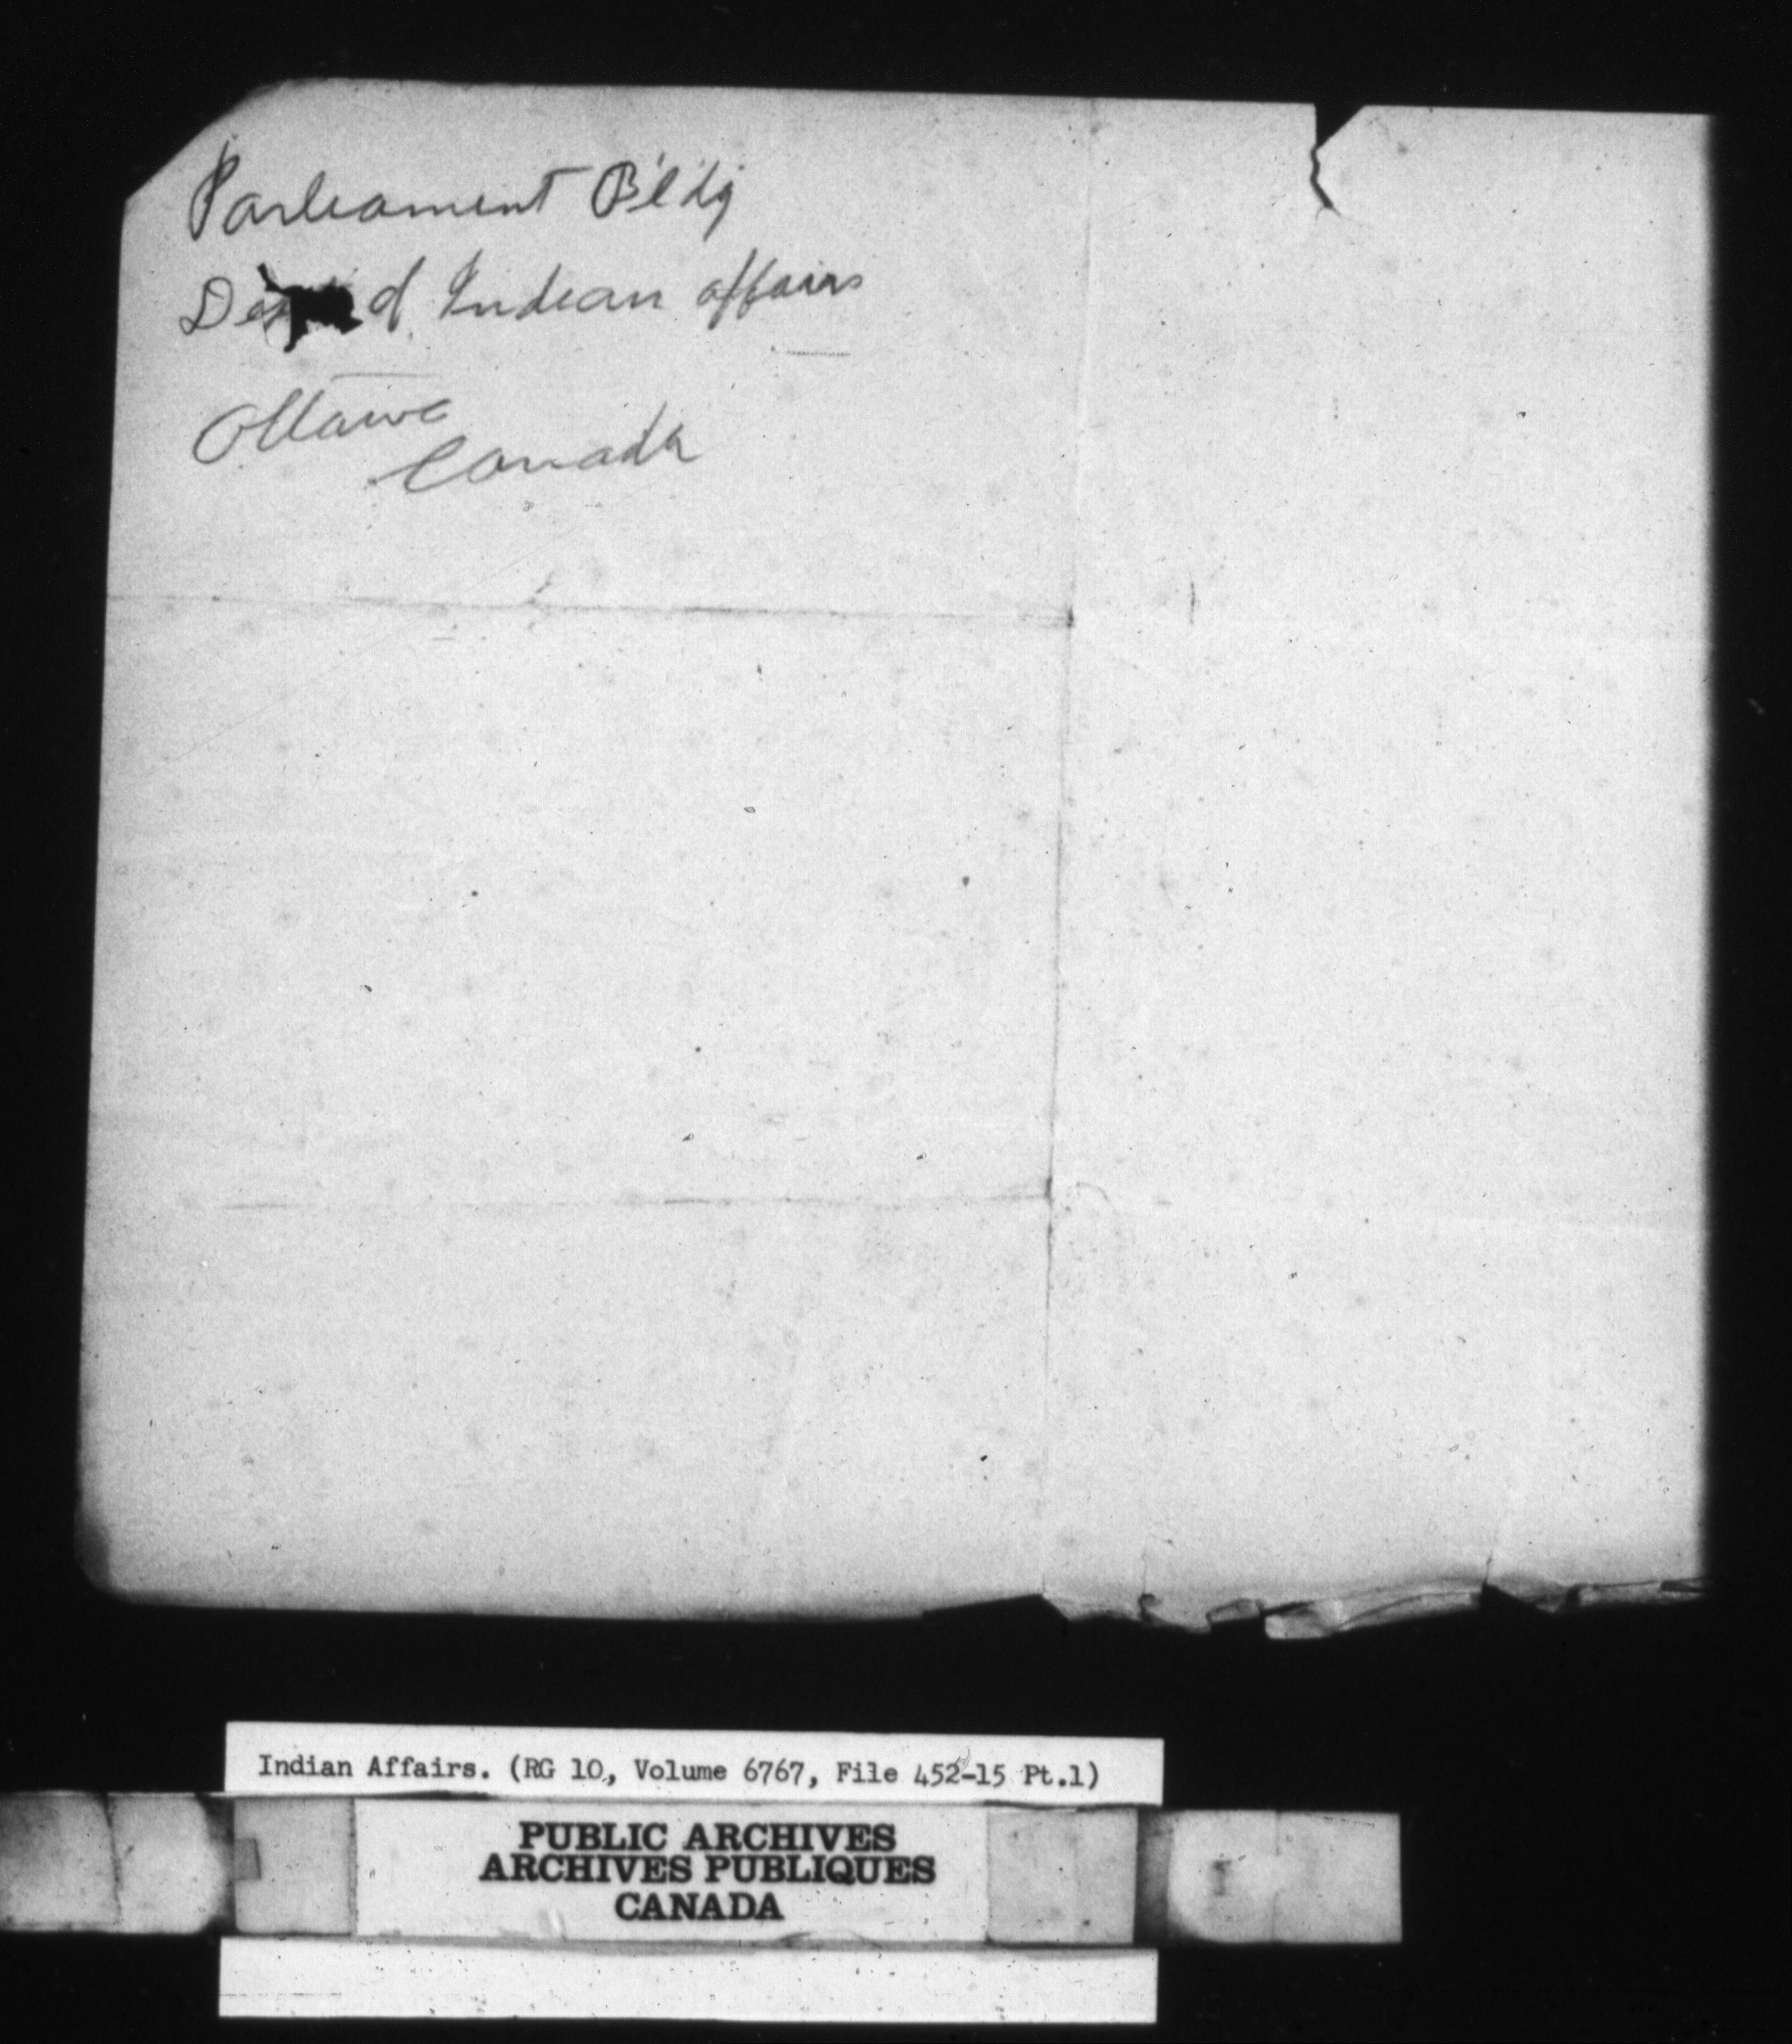 Parliament Bldg
Dept of Indian affairs
Ottawa
Canada
Indian Affairs. (RG 10, Volume 6767, File 452-15 Pt.1)
PUBLIC ARCHIVES
ARCHIVES PUBLIQUES
CANADA